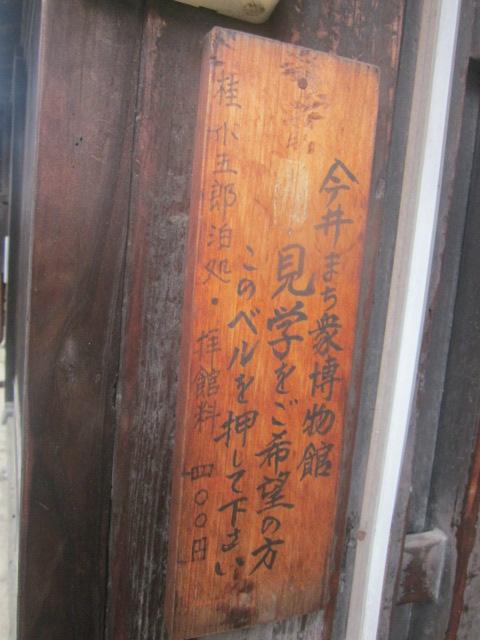 今井まち衆博物館
見学をご希望の方
このベルを押して下さい
桂小五郎泊処・拝館料四〇〇円